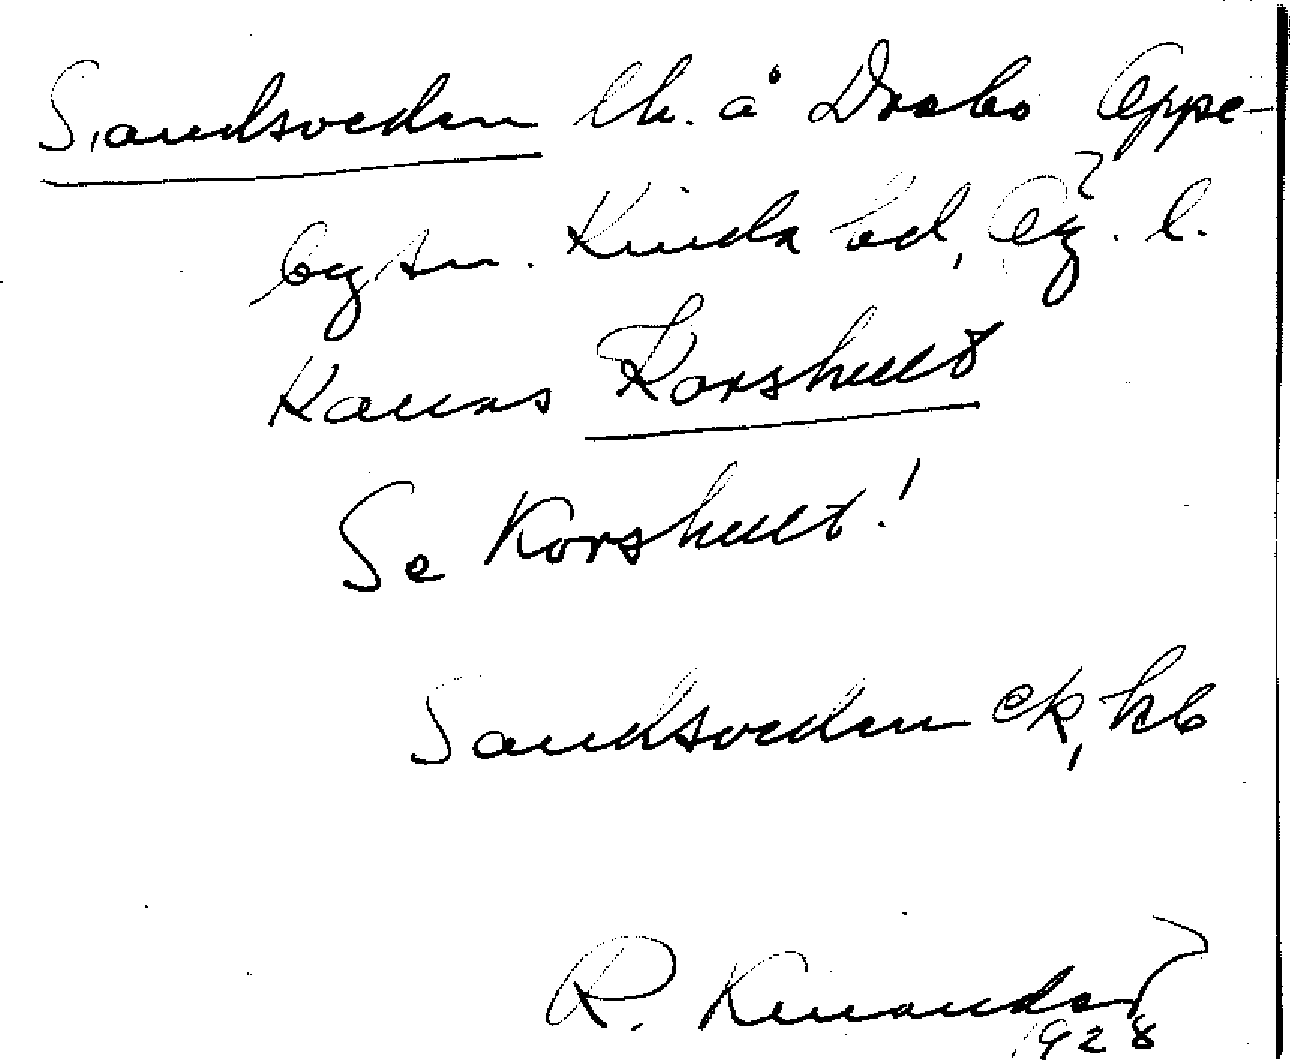 Sandsveden lh. å Drabo Oppe-
by sn. Kinda hd, Ög. l.
Kallas Korshult
Se Korshult!
Sandsveden ek, kb
R. Kinander
1928